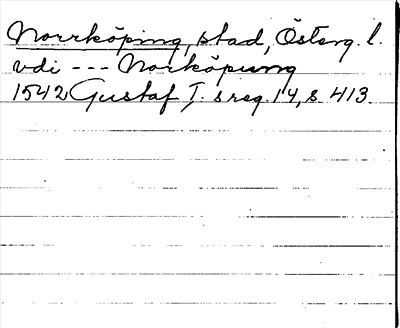 Norrköping, stad, Österg. l.
vdi --- Norköpung
1542 Gustaf I. s reg. 14, s. 413.